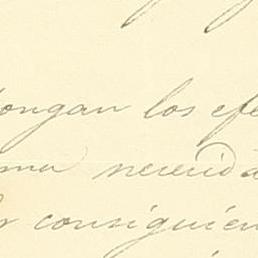 ongan los efe
ma necesida
r consiguien